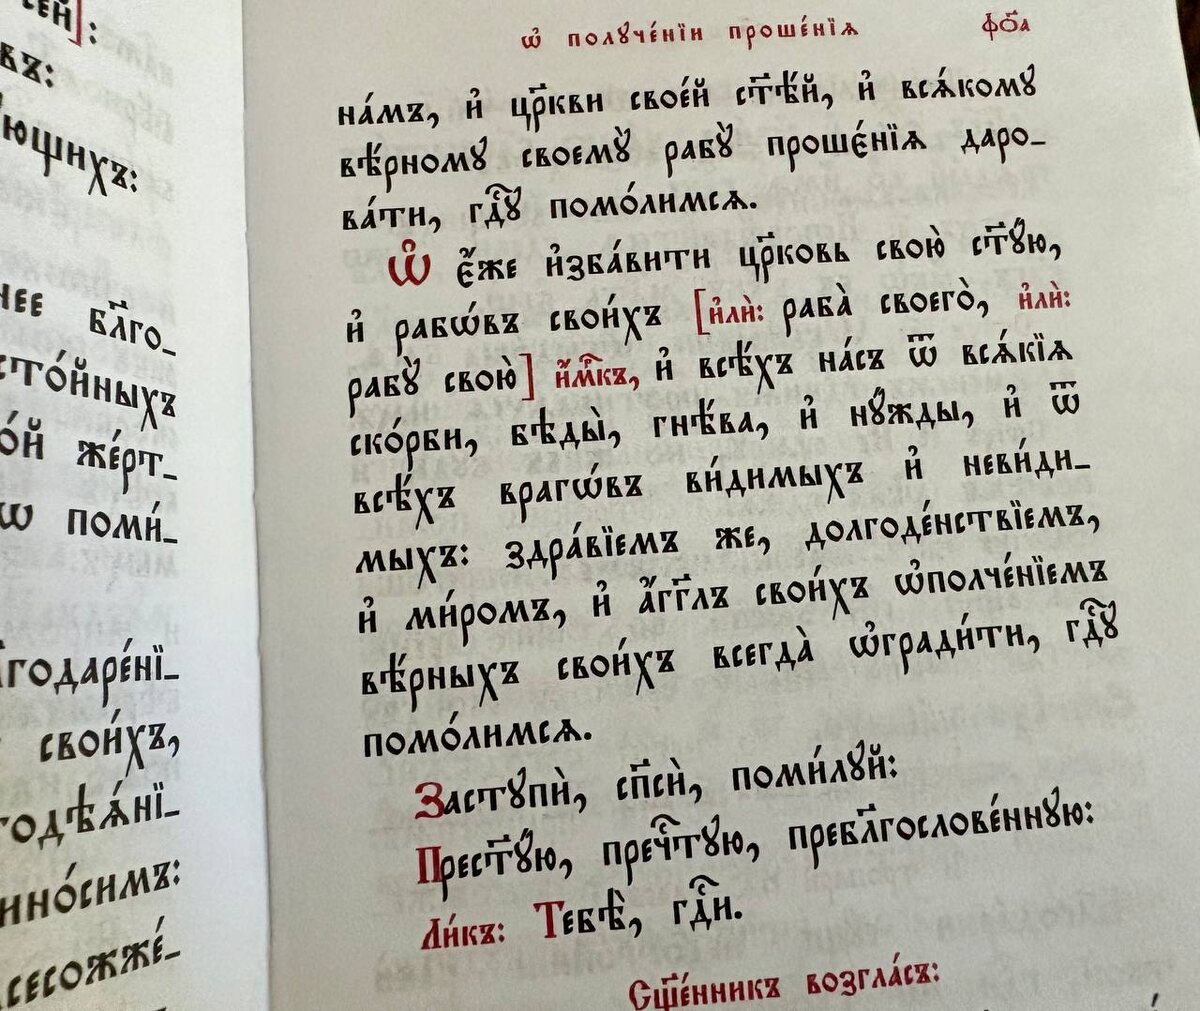 сей]:
въ:
ющихъ:
нее бл҃го_
сто́йныхъ
о́й же́рт_
ѡ поми́_
годаре́нї_
свои́хъ,
годѣѧ́нї_
нно́симъ:
сесожже́_
ѡ҆ полꙋче́нїи проше́нїѧ
фо҃а
на́мъ, и҆ цр҃кви свое́й ст҃ѣ́й, и҆ всѧ́комꙋ
вѣ́рномꙋ своемꙋ̀ рабꙋ̀ прошє́нїѧ даро_
ва́ти, гдⷭ҇ꙋ помо́лимсѧ.
Ѡ҆ є҆́же и҆зба́вити цр҃ковь свою̀ ст҃ꙋ́ю,
и҆ рабѡ́въ свои́хъ [и҆лѝ: раба̀ своего̀, и҆лѝ:
рабꙋ̀ свою̀] и҆́мк҃ъ, и҆ всѣ́хъ на́съ ѿ всѧ́кїѧ
ско́рби, бѣды̀, гнѣ́ва, и҆ нꙋ́жды, и҆ ѿ
всѣ́хъ врагѡ́въ ви́димыхъ и҆ неви́ди_
мыхъ: здра́вїемъ же, долгоде́нствїемъ,
и҆ ми́ромъ, и҆ а҆́гг҃лъ свои́хъ ѡ҆полче́нїемъ
вѣ́рныхъ свои́хъ всегда̀ ѡ҆гради́ти, гдⷭ҇ꙋ
помо́лимсѧ.
Застꙋпѝ, сп҃сѝ, поми́лꙋй:
Прест҃ꙋ́ю, пречⷭ҇тꙋю, пребл҃гослове́ннꙋю:
Ли́къ: Тебѣ̀, гдⷭ҇и.
Сщ҃е́нникъ возгла́съ: